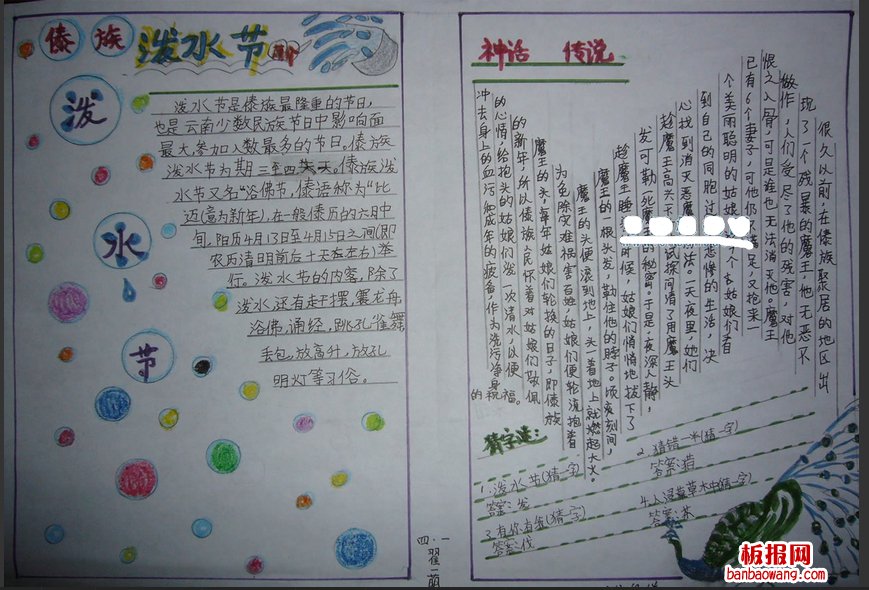 傣族
泼水节
泼
水
节
泼水节是傣族最隆重的节日，
也是云南少数民族节日中影响面
最大，参加人数最多的节日。傣族
泼水节为期三至四天。傣族泼
水节又名“浴佛节，傣语称为“比
迈(意为新年)，在一般傣历的六月中
旬，阳历4月13日至4月15日之间(即
农历清明前后十天左右)举
行。泼水节的内容，除了
泼水，还有赶摆，赛龙舟，
浴佛，诵经，跳孔雀舞
丢包，放高升，放孔
明灯等习俗。
神话 传说
很久以前，在傣族聚居的地区出
现了一个残暴的魔王，他无恶不
做作，人们受尽了他的残害，对他
恨之入骨，可是谁也无法消灭他。魔王
已有6个妻子，可他仍
足，又抢来一
个美丽聪明的姑娘
个
姑娘们看
到自己的同胞过
悲惨的生活，决
心找到消灭恶魔
办法。一天夜里，她们
趁魔王高兴
试探问清了用魔王头
发可勒死魔王的秘密。于是，夜深人静，
趁魔王睡
时候，姑娘们悄悄地拔下了
魔王的一根头发，勒住他的脖子。顷刻间，
魔王的头便滚到地上，头一着地上就燃起大火。
为免除灾难祸害百姓，姑娘们便轮流抱着
魔王的头，每年姑娘们轮换的日子，即傣族
的新年，所以傣族人民怀着对姑娘们敬佩
的心情，给抱头的姑娘们泼一次清水，以便
冲去身上的血污和成年的疲备，作为洗污净身
的祝福。
猜字谜：
1.泼水节(猜一字)
答案：发
2.猜错一半(猜一字)
答案：猎
3.有你有我(猜一字)
答案：伐
4.人温草木中猜一字)
答案：茶
四.一
翟一萌
板报网
banbaowang.com